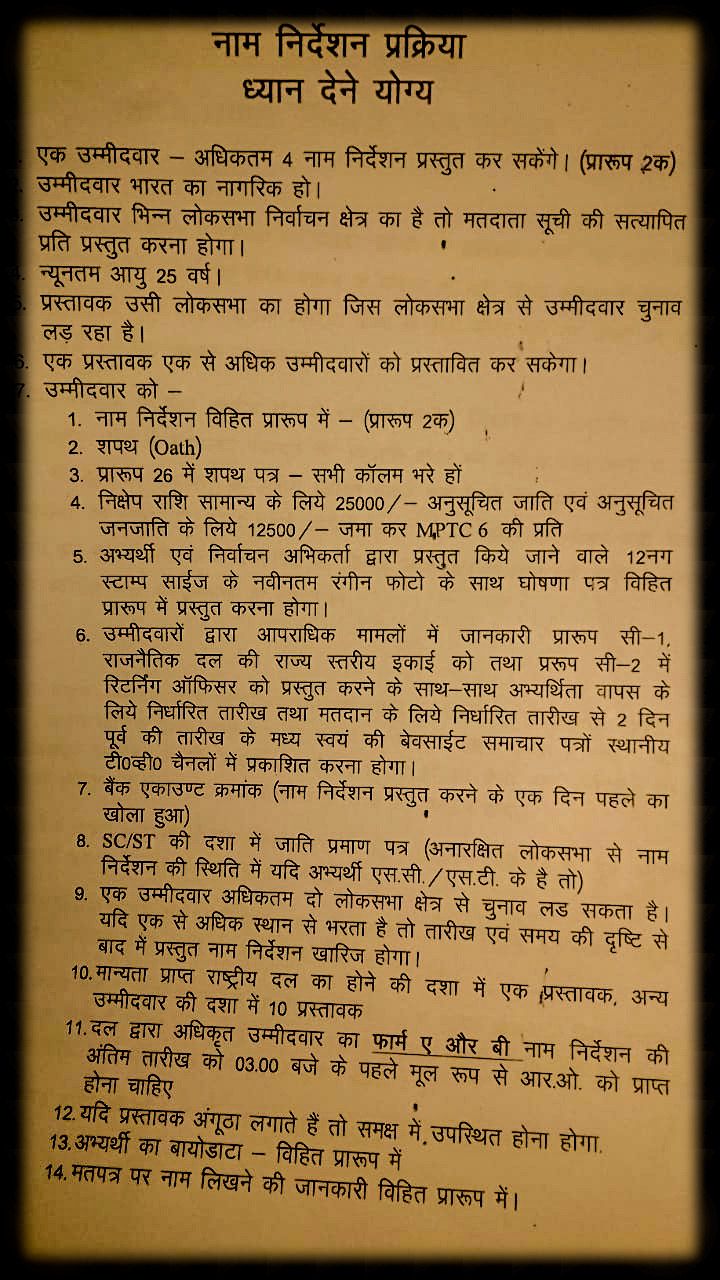 नाम निर्देशन प्रक्रिया
ध्यान देने योग्य
एक उम्मीदवार – अधिकतम 4 नाम निर्देशन प्रस्तुत कर सकेंगे। (प्रारूप 2क)
उम्मीदवार भारत का नागरिक हो।
उम्मीदवार भिन्न लोकसभा निर्वाचन क्षेत्र का है तो मतदाता सूची की सत्यापित
प्रति प्रस्तुत करना होगा।
न्यूनतम आयु 25 वर्ष।
5. प्रस्तावक उसी लोकसभा का होगा जिस लोकसभा क्षेत्र से उम्मीदवार चुनाव
लड़ रहा है।
6. एक प्रस्तावक एक से अधिक उम्मीदवारों को प्रस्तावित कर सकेगा।
7. उम्मीदवार को –
1. नाम निर्देशन विहित प्रारूप में – (प्रारूप 2क)
2. शपथ (Oath)
3. प्रारूप 26 में शपथ पत्र – सभी कॉलम भरे हों
4. निक्षेप राशि सामान्य के लिये 25000/– अनुसूचित जाति एवं अनुसूचित
जनजाति के लिये 12500/– जमा कर MPTC 6 की प्रति
5. अभ्यर्थी एवं निर्वाचन अभिकर्ता द्वारा प्रस्तुत किये जाने वाले 12नग
स्टाम्प साईज के नवीनतम रंगीन फोटो के साथ घोषणा पत्र विहित
प्रारूप में प्रस्तुत करना होगा।
6. उम्मीदवारों द्वारा आपराधिक मामलों में जानकारी प्रारूप सी–1,
राजनैतिक दल की राज्य स्तरीय इकाई को तथा प्ररूप सी–2 में
रिटर्निंग ऑफिसर को प्रस्तुत करने के साथ–साथ अभ्यर्थिता वापस के
लिये निर्धारित तारीख तथा मतदान के लिये निर्धारित तारीख से 2 दिन
पूर्व की तारीख के मध्य स्वयं की बेवसाईट समाचार पत्रों स्थानीय
टी0व्ही0 चैनलों में प्रकाशित करना होगा।
7. बैंक एकाउण्ट क्रमांक (नाम निर्देशन प्रस्तुत करने के एक दिन पहले का
खोला हुआ)
8. SC/ST की दशा में जाति प्रमाण पत्र (अनारक्षित लोकसभा से नाम
निर्देशन की स्थिति में यदि अभ्यर्थी एस.सी./एस.टी. के है तो)
9. एक उम्मीदवार अधिकतम दो लोकसभा क्षेत्र से चुनाव लड सकता है।
यदि एक से अधिक स्थान से भरता है तो तारीख एवं समय की दृष्टि से
बाद में प्रस्तुत नाम निर्देशन खारिज होगा।
10. मान्यता प्राप्त राष्ट्रीय दल का होने की दशा में एक प्रस्तावक, अन्य
उम्मीदवार की दशा में 10 प्रस्तावक
11. दल द्वारा अधिकृत उम्मीदवार का फार्म ए और बी नाम निर्देशन की
अंतिम तारीख को 03.00 बजे के पहले मूल रूप से आर.ओ. को प्राप्त
होना चाहिए
12. यदि प्रस्तावक अंगूठा लगाते हैं तो समक्ष में उपस्थित होना होगा.
13. अभ्यर्थी का बायोडाटा – विहित प्रारूप में
14. मतपत्र पर नाम लिखने की जानकारी विहित प्रारूप में।